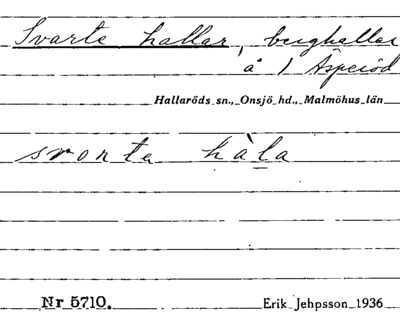 Svarte hallar, berghallar
å 1 Äsperöd
Hallaröds sn., Onsjö hd., Malmöhus län
svorta hàla
Nr 5710.
Erik Jehpsson 1936